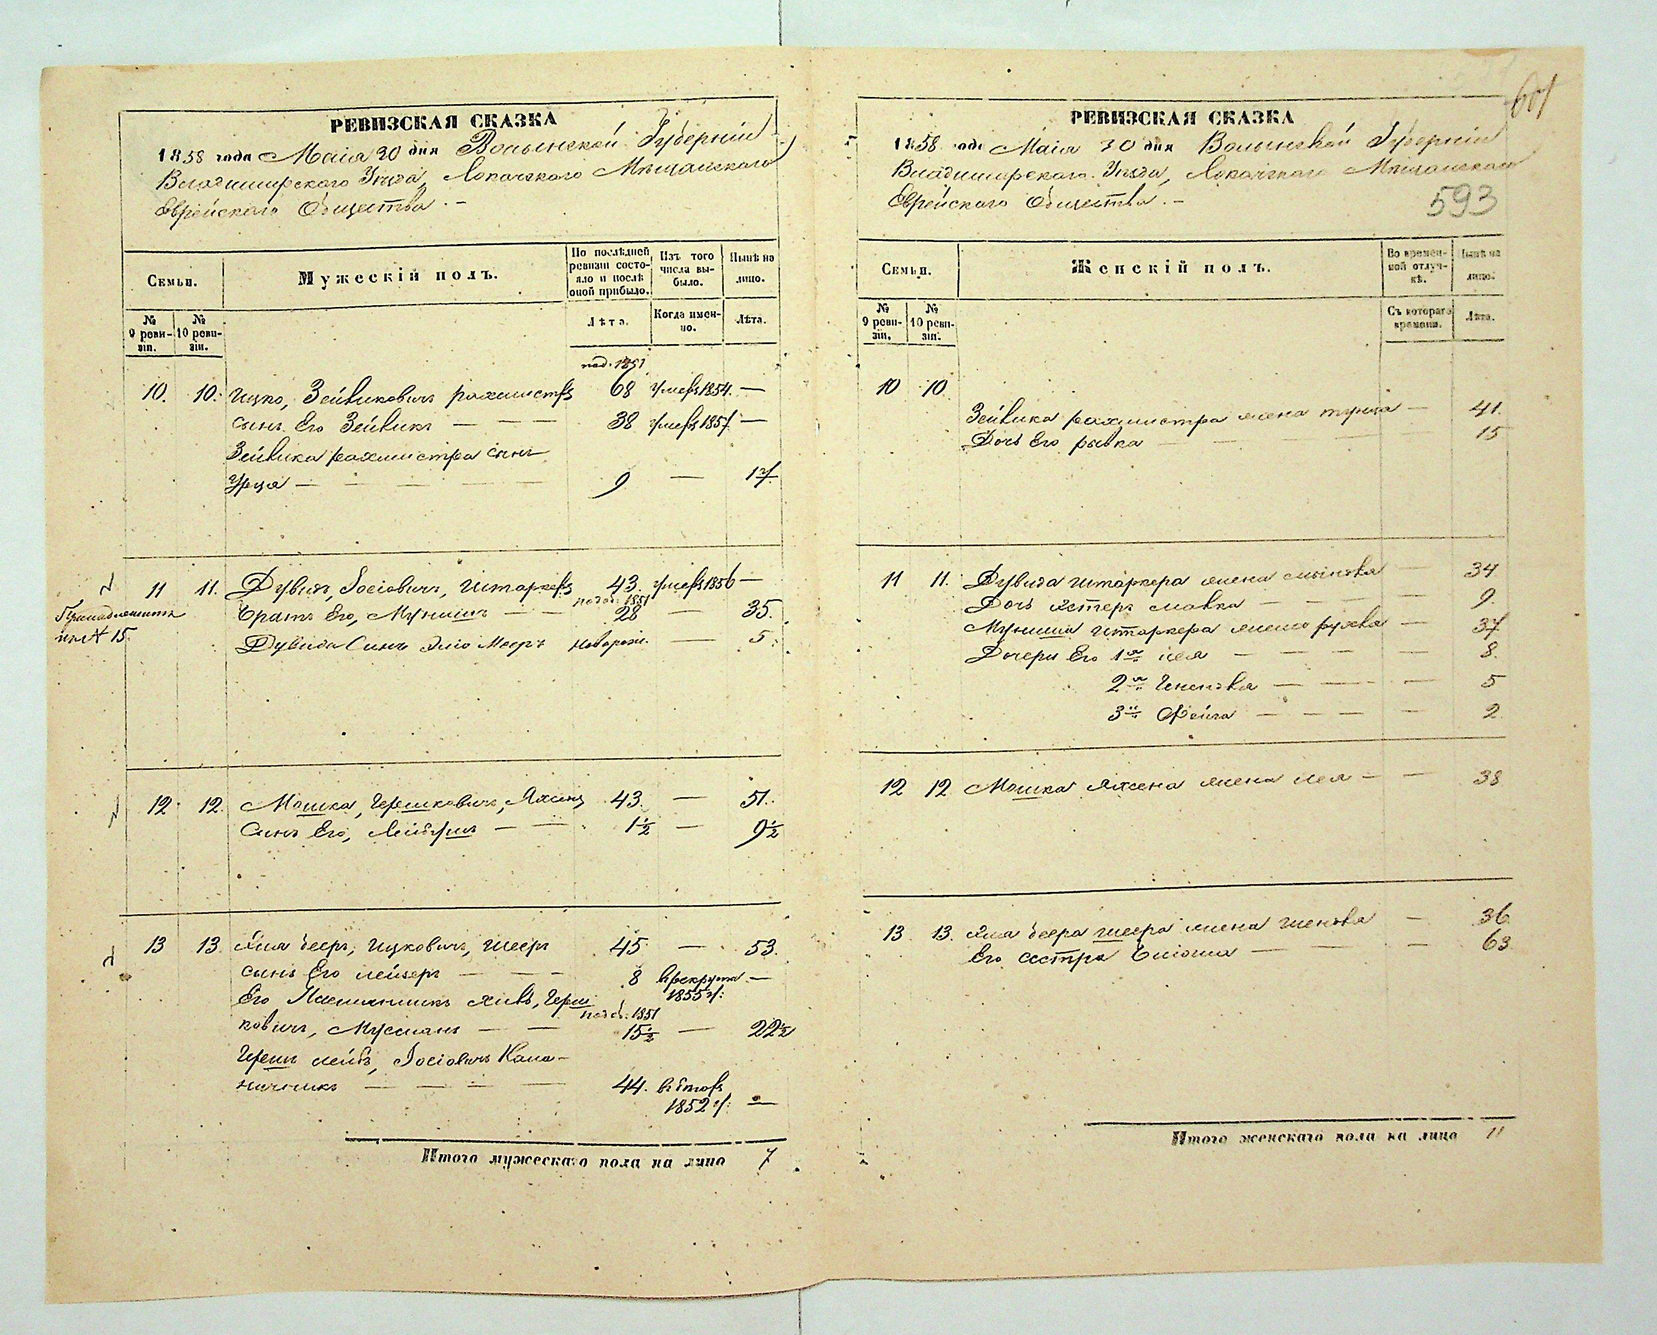 601
РЕВИЗСКАЯ СКАЗКА
1858 года Маія 30 дня Волынской Губерніи
Владимирского Уѣзда, Локачского Мѣщанского
Еврейского Общества. –
Семьи.
Мужескій полъ.
По послѣдней ревизіи состояло и послѣ оной прибыло.
Изъ того числа выбыло.
Нынѣ на лицо.
№ 9 ревизіи.
№ 10 ревизіи.
Лѣта.
Когда именно.
Лѣта.
10. 10. Ицко, Зейвиковичъ рахмистръ 68 умеръ 1854. —
сынъ Его Зейвикъ — — — 38 умеръ 1857 —
Зейвика рахмистра сынъ
— — — — 9 — 17.
11 11. Дувидъ, Іосіовичъ, Штаркеръ 43 умеръ 1856 —
1851
братъ Его, Мунишъ — — 28 — 35.
Дувида Сынъ Меоръ новорож. — 5.
№ 15.
12. 12. Мошка, Гершковичъ, 43. — 51.
Сынъ Его, — — 1½ — 9½
13 13. беръ, Ицковичъ, шееръ 45 — 53.
сынъ Его лейзеръ — — 8 в рекруты —
1855 г:
Его Племянникъ Герш
1851
ковичъ, — — 15½ — 22½
Гершъ лейбъ, Іосіовичъ
— — — — 44.
1852 г: —
Итого мужескаго пола на лицо 7
РЕВИЗСКАЯ СКАЗКА
1858 года Маія 30 дня Волынской Губерніи
Владимирского Уѣзда, Локачского Мѣщанского
Еврейского Общества. –
593
Семьи.
Женскій полъ.
Во временной отлучкѣ.
Нынѣ на лицо.
№ 9 ревизіи.
№ 10 ревизіи.
Съ котораго времени.
Лѣта.
10 10.
Зейвика рахмистра жена — 41.
Дочь Его рывка — — — 15
11 11. Дувида штаркера жена — 34
Дочь Естеръ малка — — — 9.
Муниша штаркера жена рухля — 37
Дочери Его 1я лея — — — — 8.
2я — — — 5
3я Фейга — — — — 2
12 12 Мошка жена лея — — 38
13 13. бера шеера жена шенdля — 36.
Его сестра — — — 63
Итого женскаго пола на лицо 11